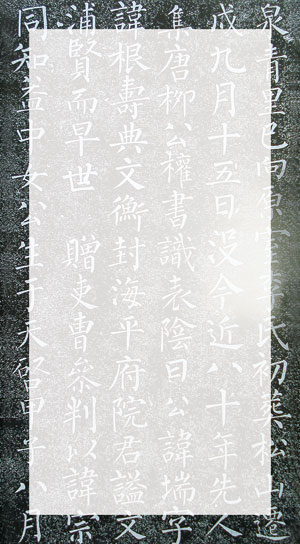 泉青里巳向原室李氏初葬松山遷
戌九月十五日没今近八十年先人
集唐柳公權書識表陰曰公諱字
諱根壽典文衡封海平府院君謚文
浦賢而早世 贈吏曹參判以諱宗
同知益中女公生于天啓甲子八月